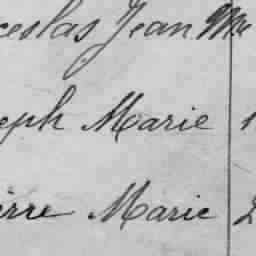 ceslas Jean Me
eph Marie 1
ierre Marie 2